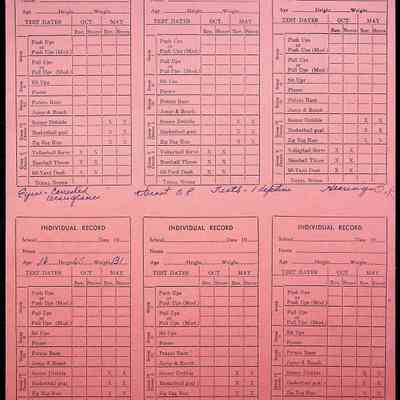 Age Height Weight Age Height Weight Age Height Weight
TEST DATES OCT. MAY TEST DATES OCT. MAY TEST DATES OCT. MAY
Rec. Score Rec. Score Rec. Score Rec. Score Rec. Score Rec. Score
Push Ups Push Ups Push Ups
or or or
Push Ups (Mod.) Push Ups (Mod.) Push Ups (Mod.)
Pull Ups Pull Ups Pull Ups
or or or
Pull Ups (Mod.) Pull Ups (Mod.) Pull Ups (Mod.)
Sit Ups Sit Ups Sit Ups
Potato Race Potato Race Potato Race
Jump & Reach Jump & Reach Jump & Reach
Soccer Dribble X X Soccer Dribble X X Soccer Dribble X X
Basketball goal X X Basketball goal X X Basketball goal X X
Zig Zag Run X X Zig Zag Run X X Zig Zag Run X X
Volleyball Serve X X Volleyball Serve X X Volleyball Serve X X
Baseball Throw X X Baseball Throw X X Baseball Throw X X
60-Yard Dash X X 60-Yard Dash X X 60-Yard Dash X X
Total Score Total Score Total Score
Eyes - Corrected Heart O.K. Teeth - 1 Hearing O.
INDIVIDUAL RECORD INDIVIDUAL RECORD INDIVIDUAL RECORD
School Date 19 School Date 19 School Date 19
Name Name Name
Age Height Weight 131 Age Height Weight Age Height Weight
TEST DATES OCT. MAY TEST DATES OCT. MAY TEST DATES OCT. MAY
Rec. Score Rec. Score Rec. Score Rec. Score Rec. Score Rec. Score
Push Ups Push Ups Push Ups
or or or
Push Ups (Mod.) Push Ups (Mod.) Push Ups (Mod.)
Pull Ups Pull Ups Pull Ups
or or or
Pull Ups (Mod.) Pull Ups (Mod.) Pull Ups (Mod.)
Sit Ups Sit Ups Sit Ups
Potato Race Potato Race Potato Race
Jump & Reach Jump & Reach Jump & Reach
Soccer Dribble X X Soccer Dribble X X Soccer Dribble X X
Basketball goal X X Basketball goal X X Basketball goal X X
Zig Zag Run X X Zig Zag Run X X Zig Zag Run X X